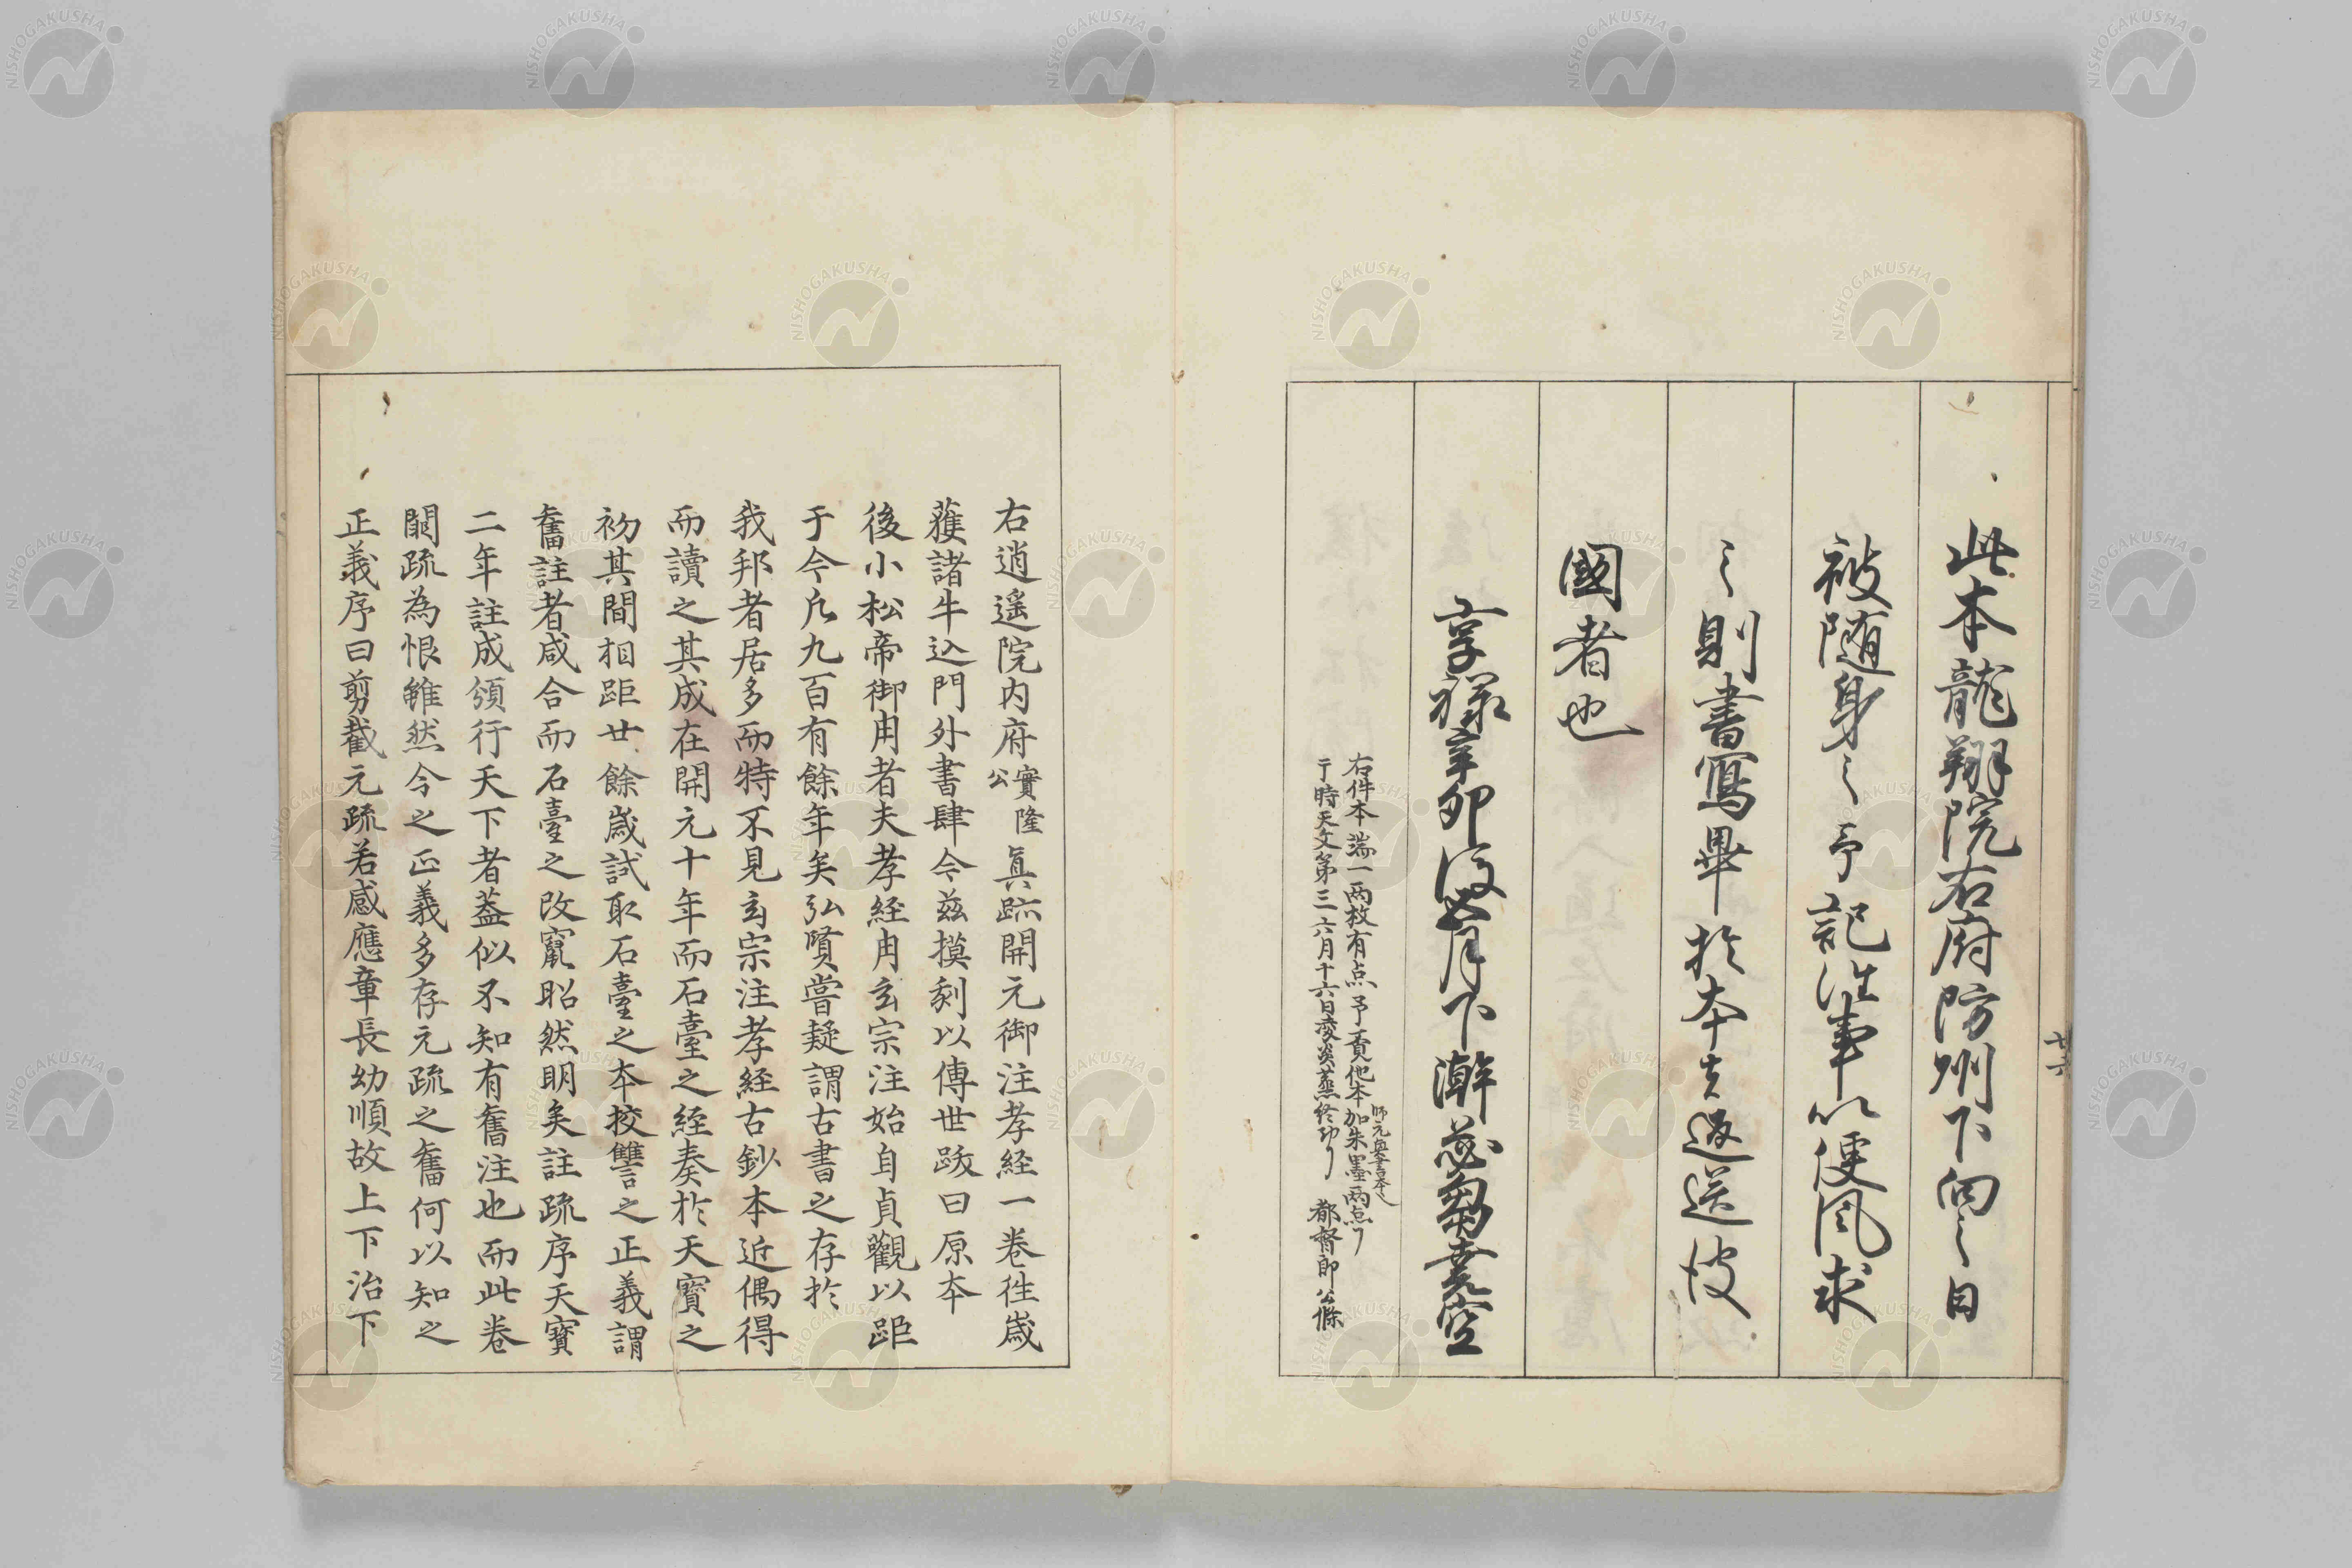 此本龍翔院右府防州下向之日
被随身之予記往事以便風求
之則書寫畢於本者返送彼
國者也
享祿辛卯後月下澣苾蒭堯空
右件本端一兩枚有点予責他本加朱墨兩点了
師元奥書本也
于時天文第三六月十六日凌炎蒸終功了 都督郎公條
廿六
右逍遥院内府實隆公眞跡開元御注孝経一巻徃歳
獲諸牛込門外書肆今兹摸刻以傳世跋曰原本
後小松帝御用者夫孝経用玄宗注始自貞觀以距
于今凢九百有餘年矣弘賢嘗疑謂古書之存於
我邦者居多而特不見玄宗注孝経古鈔本近偶得
而讀之其成在開元十年而石臺之経奏於天寳之
初其間相距廿餘歳試取石臺之本挍讐之正義謂
舊註者咸合而石臺之改竄昭然明矣註疏序天寳
二年註成頒行天下者蓋似不知有舊注也而此巻
闕疏為恨雖然今之正義多存元疏之舊何以知之
正義序曰剪截元疏若感應章長幼順故上下治下
NISHOGAKUSHA